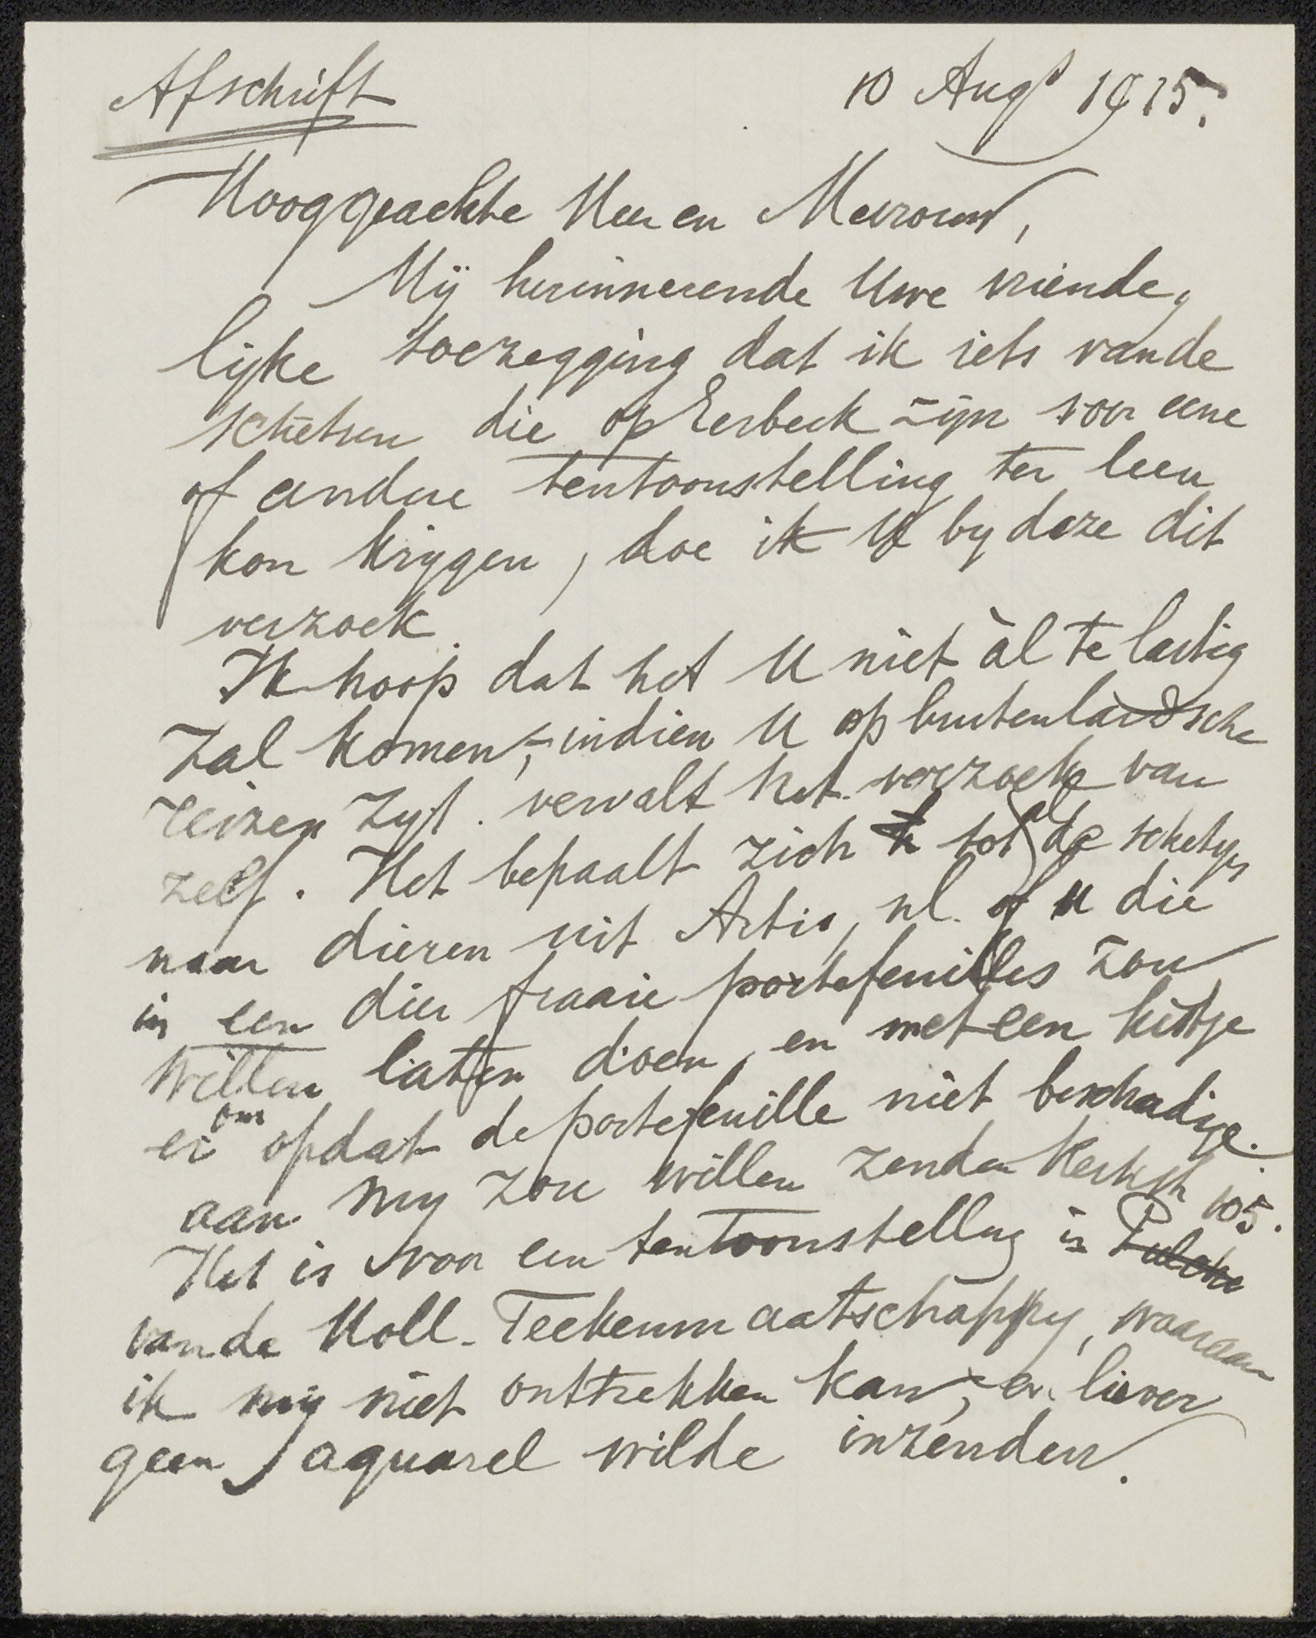 Afschrift
10 Augs 1915.
Hooggeachte Heer en Mevrouw,
Mij herinnerende Uwe vriende,
lijke toezegging dat ik iets van de
schetsen die op Eerbeek zijn voor eene
of andere tentoonstelling ter leen
kon krijgen, doe ik U by deze dit
verzoek.
Ik hoop dat het U niet àl te lastig
zal komen, - indien U op buitenlandsche
reizen zyt. vervalt het verzoek van
zelf. Het bepaalt zich tot al de schetsjes
naar dieren uit Artis, nl. of U die
in een dier fraaie portefeuilles zou
willen laten doen, en met een kistje
er om opdat de portefeuille niet beschadige.
aan my zou willen zenden Kerkstr 105.
Het is voor een tentoonstelling in Pulchri
van de Holl. Teekenmaatschappy, waaraan
ik mij niet onttrekken kan, - en liever
geen aquarel wilde inzenden.